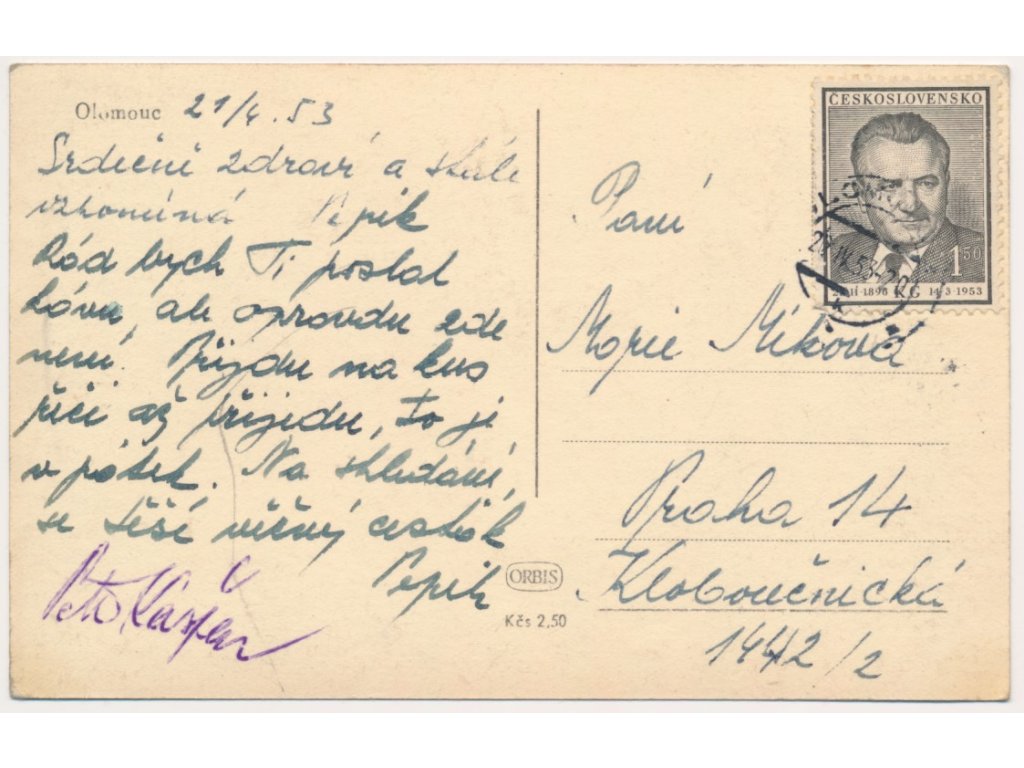 Olomouc 21/4.53
Srdečně zdraví a stále
vzpomíná Pepík
Rád bych Ti poslal
kávu, ale opravdu zde
není. Přijdu na kus
řeči až přijedu, to je
v pátek. Na shledání
se těší věčný cesťák
Pepík
Petr
ORBIS
Kčs 2,50
ČESKOSLOVENSKO
1 50
1896 KG 14·3·1953
Paní
Marie Míková
Praha 14
Kloboučnická
1442/2